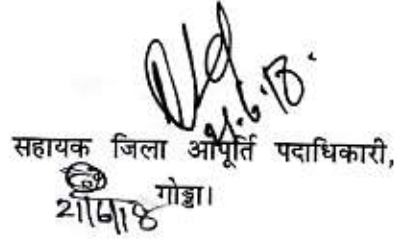 21.6.18.
सहायक जिला आपूर्ति पदाधिकारी,
गोड्डा।
21/6/18